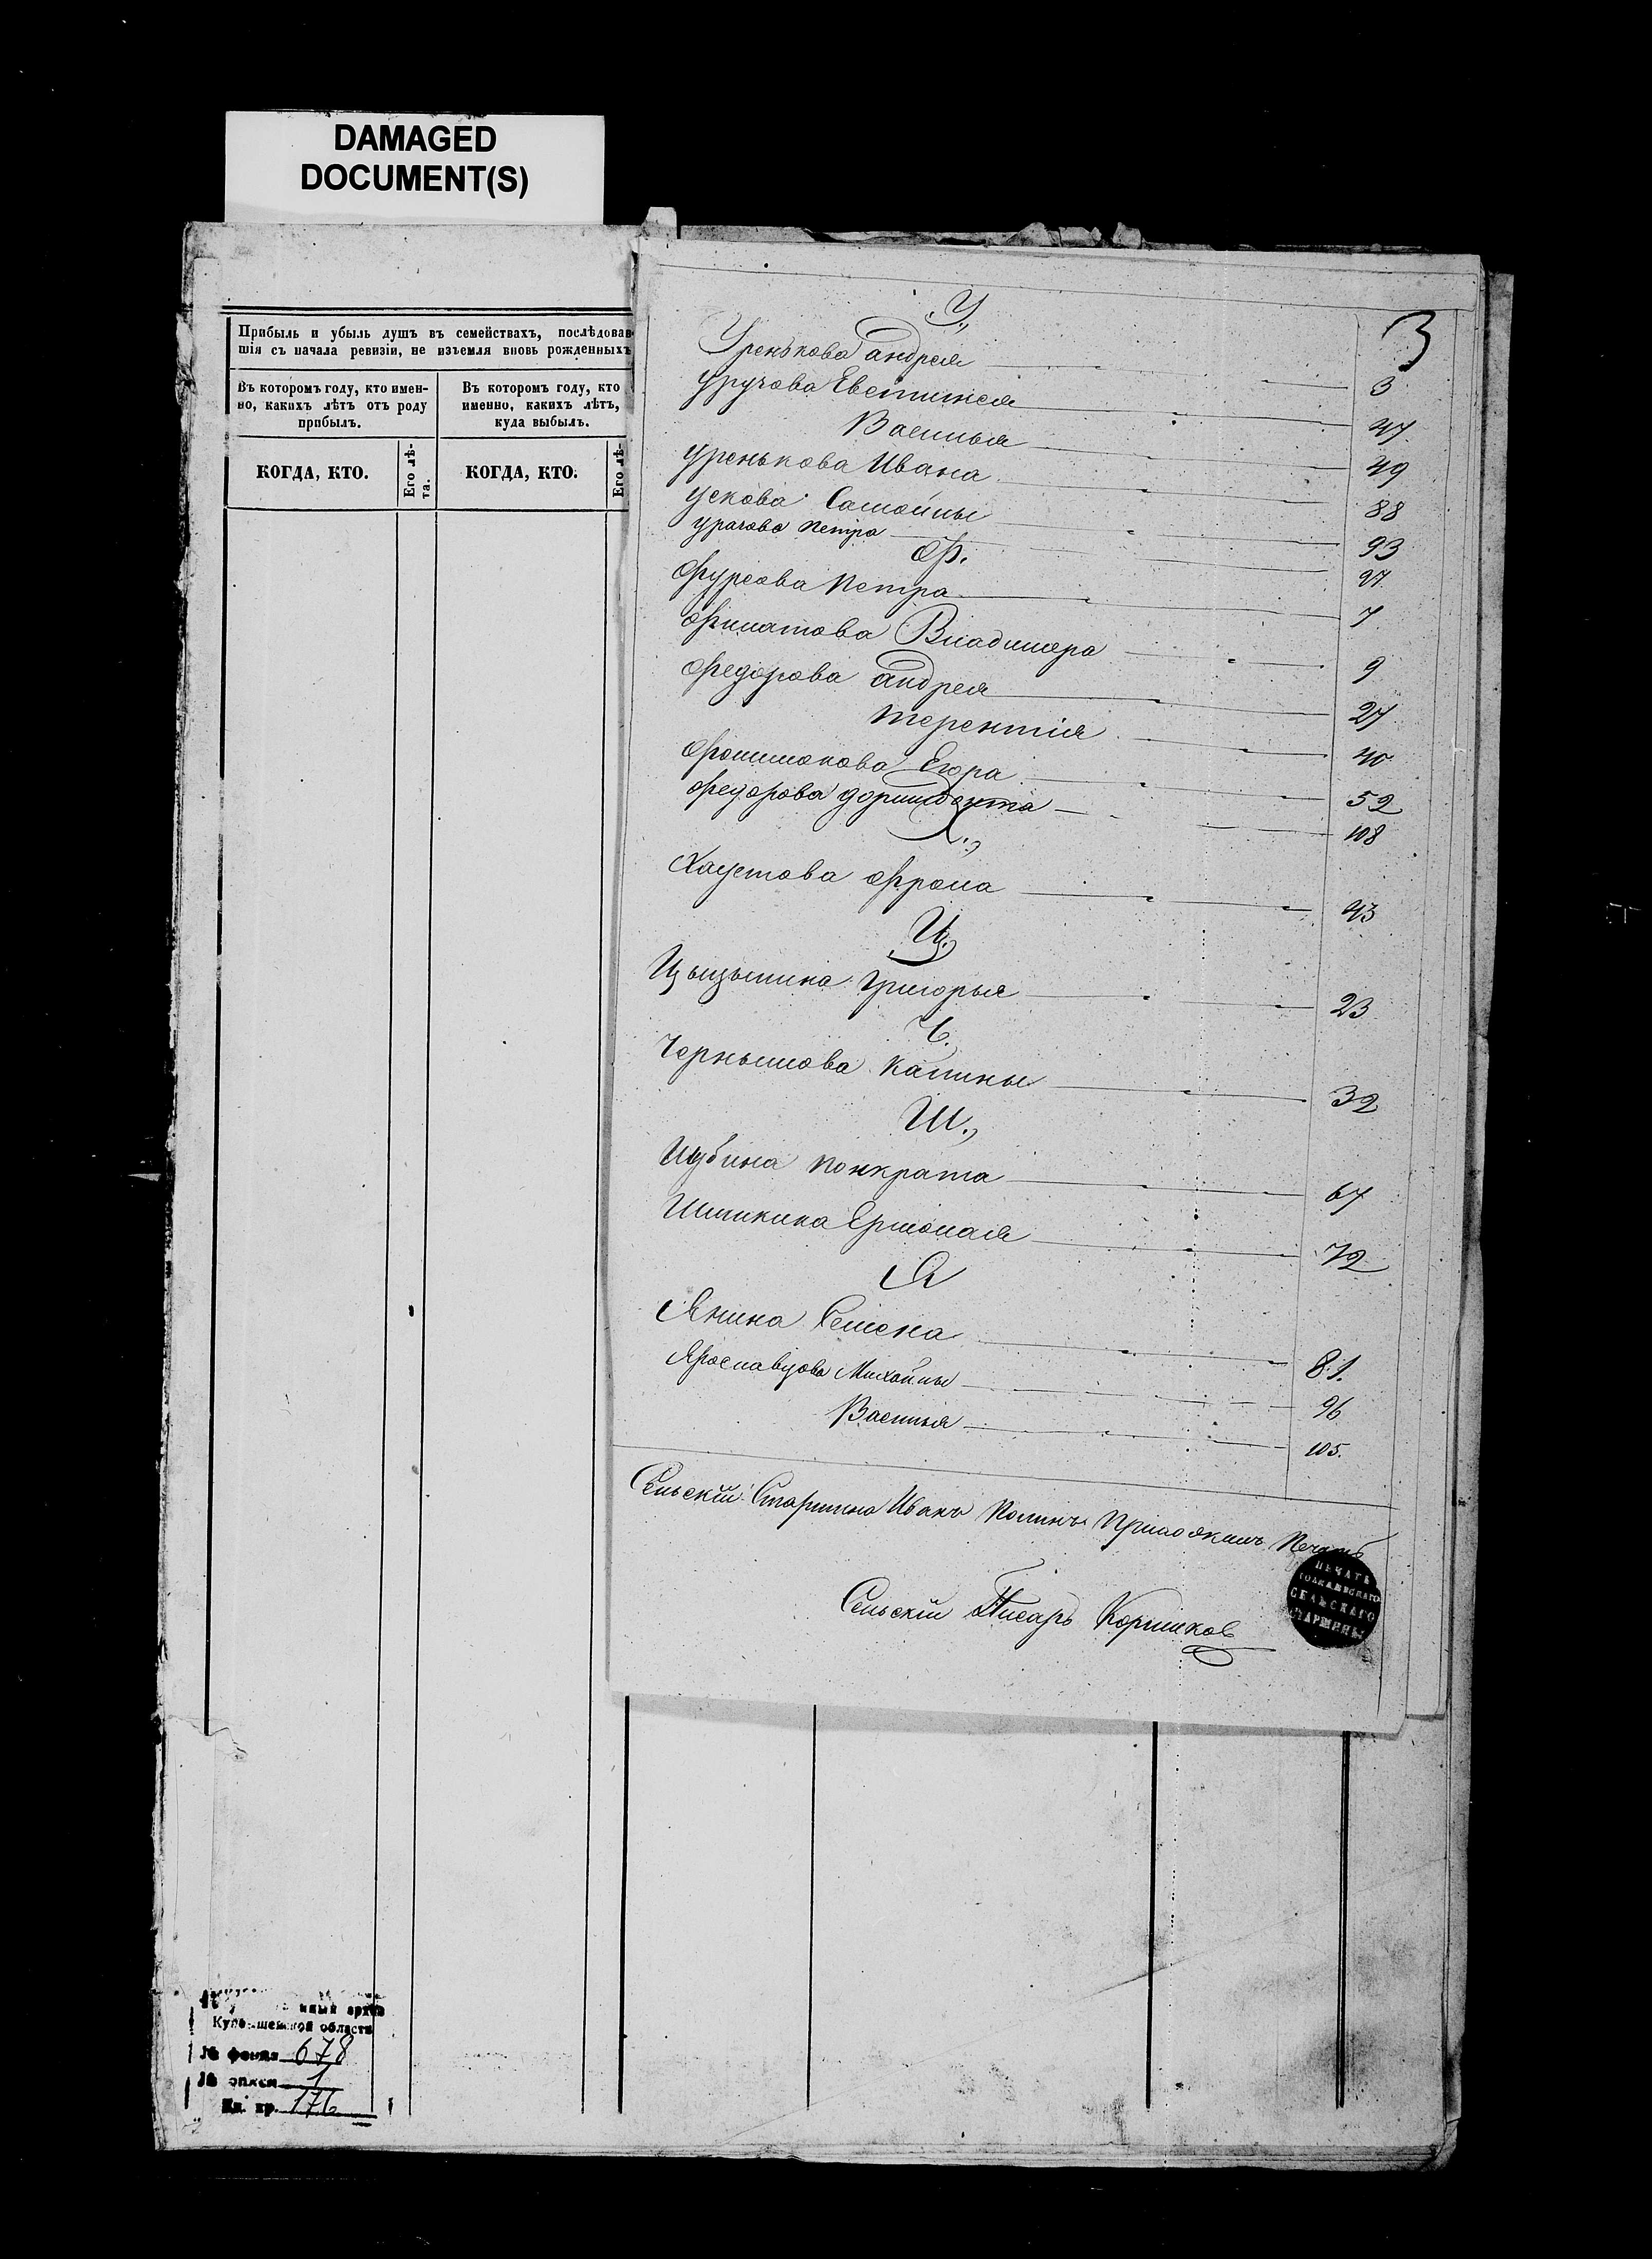 DAMAGED
DOCUMENT(S)
Прибыль и убыль душъ въ семействахъ, послѣдовав
шія съ начала ревизіи, не изъемля вновь рожденныхъ
Въ которомъ году, кто имен-
но, какихъ лѣтъ отъ роду
прибылъ.
Въ которомъ году, кто
именно, какихъ лѣтъ,
куда выбылъ.
КОГДА, КТО.
Его лѣ-
та.
КОГДА, КТО.
Его лѣ-
3
У.
Уренькова андрея 3
Уручова Евстишея 47
Василья 49
Уренькова Ивана 88
Ускова Самойлы 93
Урачова Петра 97
Ф.
Фурсова Петра 7
Филатова Владимера 9
Федорова андрея 27
Терентія 40
Егора 52
Федорова 108
Х.
Хаустова Фрола 43
Ц.
Цыцылина Григорья 23
Ч.
Чернышова Калины 32
Ш.
Шубина Понкрата 67
Шишкина Ермолая 72
Я
Янина Семена 81.
Ярославцова Михайлы 96
Василья 105.
Сельскій Старшина Иванъ Полинъ Приложилъ Печать
Сельскій Писарь Коршиков
ПЕЧАТЬ
СЕЛЬСКАГО
СТАРШИНЫ
архив
Куйбышевской области
№ фонда 678
№ описи 1
Ед. хр. 176